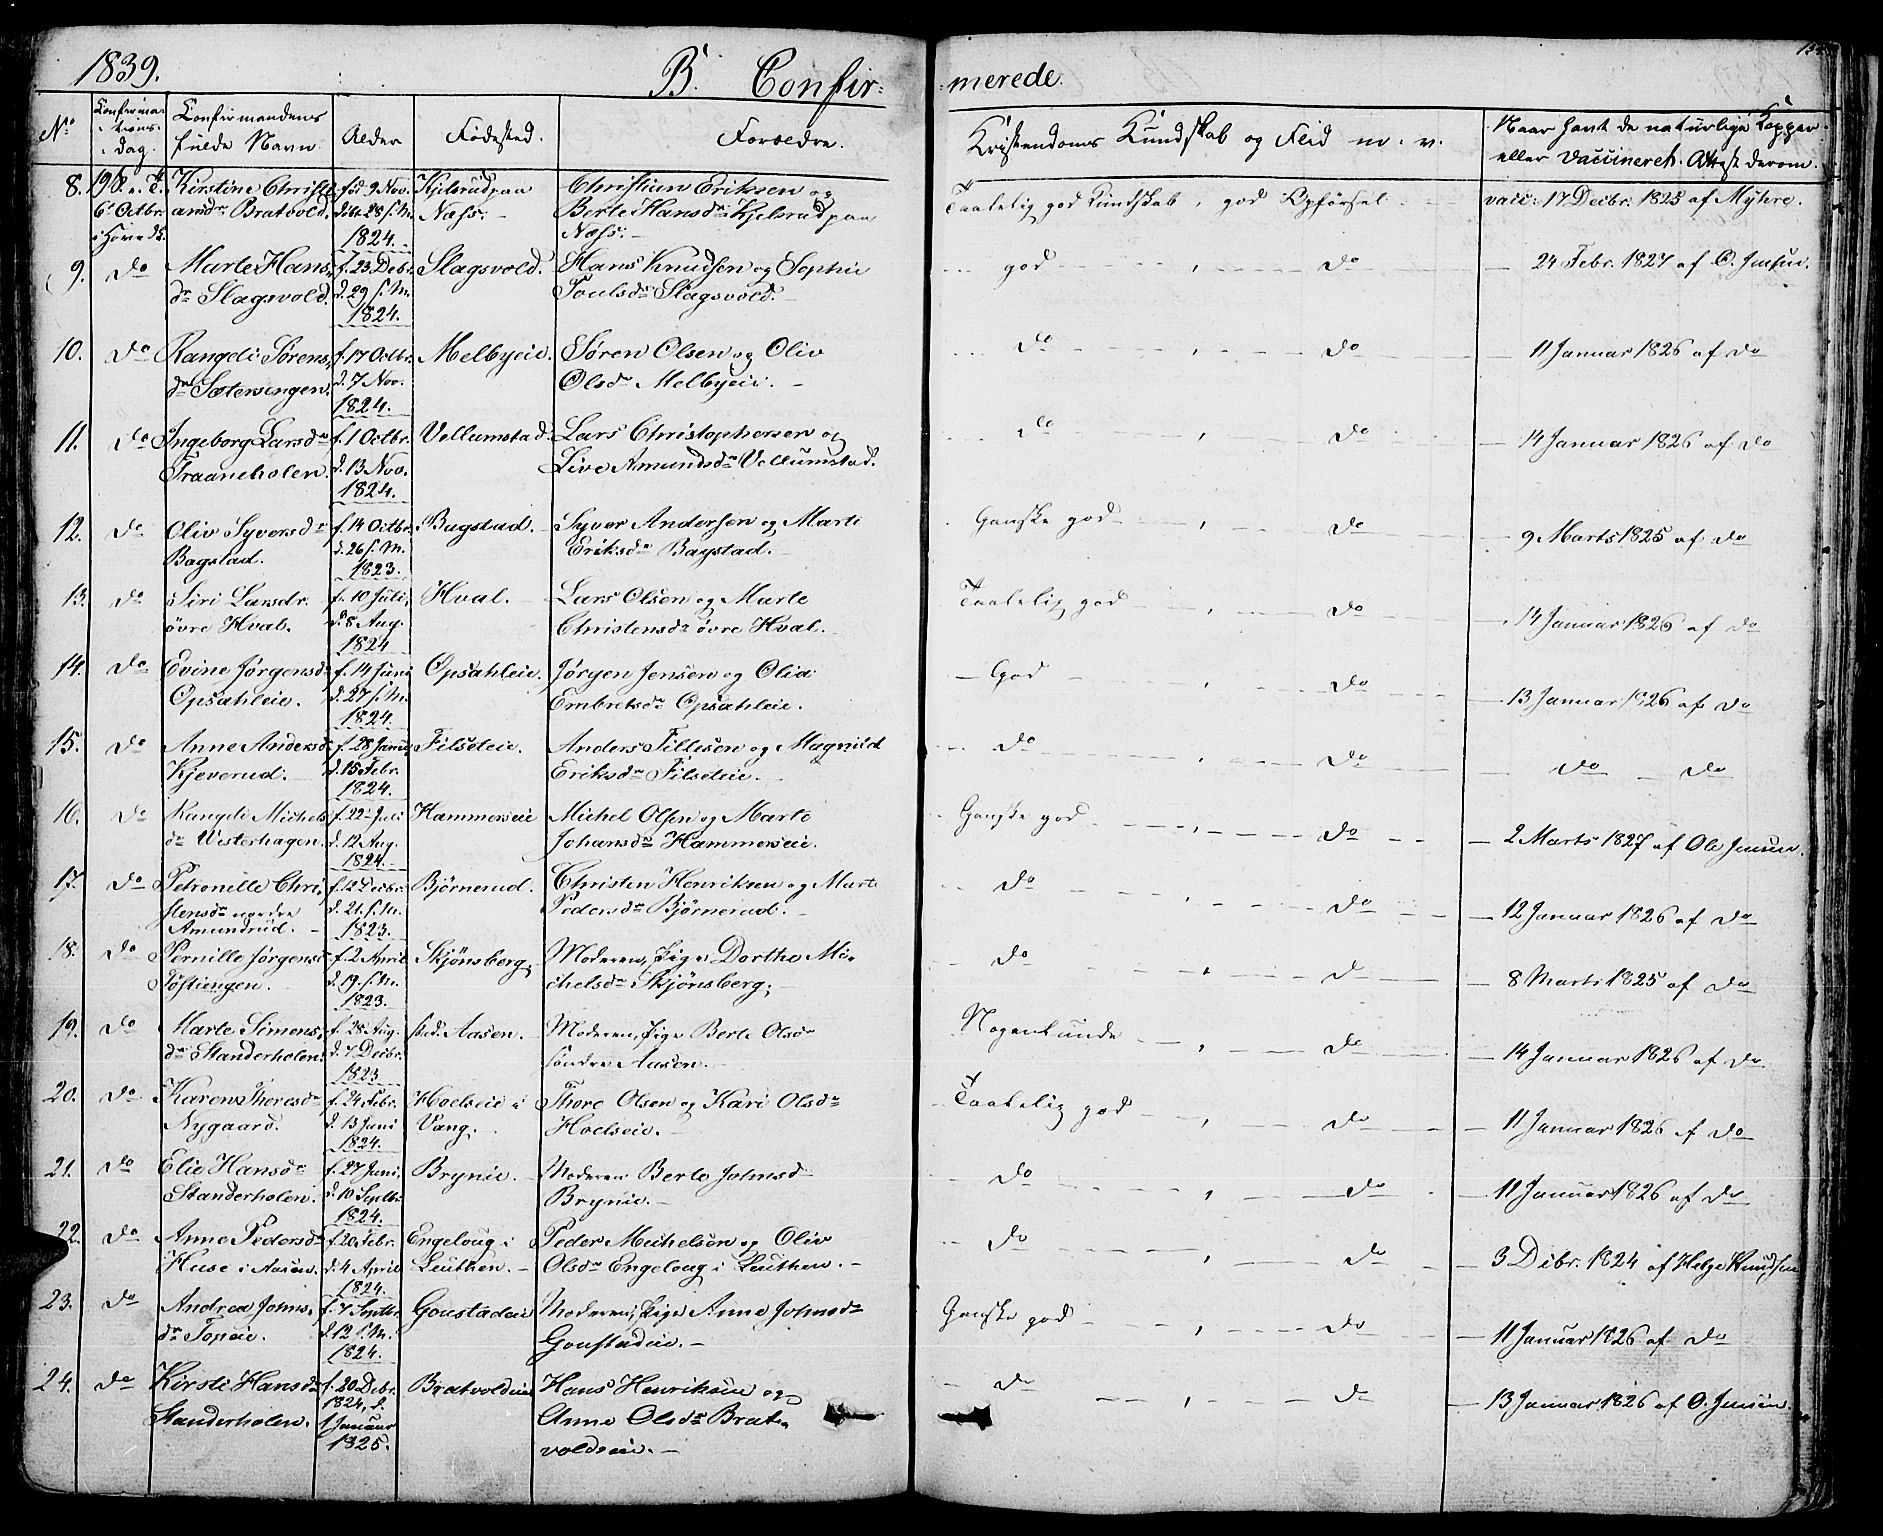 1839.
B. Confir-
-merede.
No
Confirma-
tions-
dag.
Confirmandens
fulde Navn
Alder
Fødested.
Forældre.
Kristendoms Kundskab og Flid m. v.
Naar havt de naturlige Kopper
eller vaccineret. Attest derom.
8. 19 S. e. T. Kirstine Christi- fød 9 Nov. Kjelsrud paa Christian Eriksen og Taalelig god Kundskab, god Opførsel vacc: 17 Decbr. 1825 af Myhre.
6 Octbr ansdr Bratvold. døbt 28 s. M. Næss. Berte Hansdr Kjelsrud paa
i Hoved K. 1824. Næss.
9. do Marte Hans- f. 23 Debr. Slagsvold. Hans Knudsen og Sophie god , do 24 Febr. 1827 af O. Jensen.
dr Slagsvold. d. 29 s. M. Poulsdr Slagsvold.
1824.
10. do Rangdi Sørens- f. 17 Octbr. Melbyeie. Søren Olsen og Oliv do , do 11 Januar 1826 af do
dr Sætersengen. d. 7 Nov. Olsdr Melbyeie.
1824.
11. do Ingeborg Larsdr f. 1 Octbr. Vellumstad. Lars Christophersen og do , do 14 Januar 1826 af do
Traaneholen. d. 13 Nov. Live Amundsdr Vellumstad.
1824.
12. do Oliv Syversdr f. 14 Octbr. Bagstad. Syver Andersen og Marte Ganske god , do 9 Marts 1825 af do
Bagstad. d. 26 s. M. Eriksdr Bagstad.
1823.
13. do Siri Larsdr. f. 10 Juli, Hval. Lars Olsen og Marte Taalelig god , do 14 Januar 1826 af do
øvre Hval. d. 8 Aug. Christensdr øvre Hval.
1824
14. do Evine Jørgensd f. 14 Juni Opsahleie. Jørgen Jensen og Olia God , do 13 Januar 1826 af do
Opsahleie. d. 27 s. M. Embretsdr Opsahleie.
1824.
15. do Anne Andersd f. 28 Janu Filseteie. Anders Tillesen og Magnild do , do do do
Kjeverud. d. 15 Febr. Eriksdr Filseteie.
1824.
16. do Rangdi Michels f. 22 Juli Hammerseie Michel Olsen og Marte Ganske god , do 2 Marts 1827 af Ole Jensen.
dr Westerhagen. d. 12 Aug. Johansdr Hammerseie.
1824.
17. do Petronille Chri- f. 12 Decbr. Bjørnerud. Christen Henriksen og Marte do , do 12 Januar 1826 af do
stensdr nordre d. 21. s. M. Pedersdr Bjørnerud.
Amundrud. 1823.
18. do Pernille Jørgensd f. 2 April Skjønsberg. Moderen, Pige Dorthe Mi- do , do 8 Marts 1825 af do
Tøstiengen. d. 19. s. M. chelsdr Skjønsberg.
1823.
19. do Marte Simons- f. 28 Aug. sød. Aasen. Moderen, Pige Berte Olsdr Nogenlunde , do 14 Januar 1826 af do
dr Standerholen. d. 7 Decbr. søndre Aasen.
1823
20. do Karen Thoresdr f. 24 Febr. Hoelseie i Thore Olsen og Kari Olsdr Taalelig god , do 11 Januar 1826 af do
Nygaard. d. 13 Juni Vang. Hoelseie.
1824.
21. do Elie Hansdr f. 27 Juni, Brynie. Moderen Berte Johnsd do , do 11 Januar 1826 af do
Standerholen. d. 10 Septbr. Brynie.
1824.
22. do Anne Pedersdr f. 20 Febr. Engeloug i Peder Michelsen og Oliv do , do 3 Debr. 1824 af Helge Knudsen
Huse i Aasen. d. 4 April Leuthen. Olsdr Engeloug i Leuthen.
1824.
23. do Andrea Johns- f. 7 Septbr. Goustadeie Moderen, Pige Anne Johnsdr Ganske god , do 11 Januar 1826 af do
dr Topeie. d. 12 s. M. Goustadeie.
1824.
24. do Kirsti Hansdr f. 20 Debr. Bratvoldeie Hans Henriksen og do , do 13 Januar 1826 af O. Jensen.
Standerholen. 1824, d. Anne Olsdr Brat-
1 Januar voldseie.
1825.